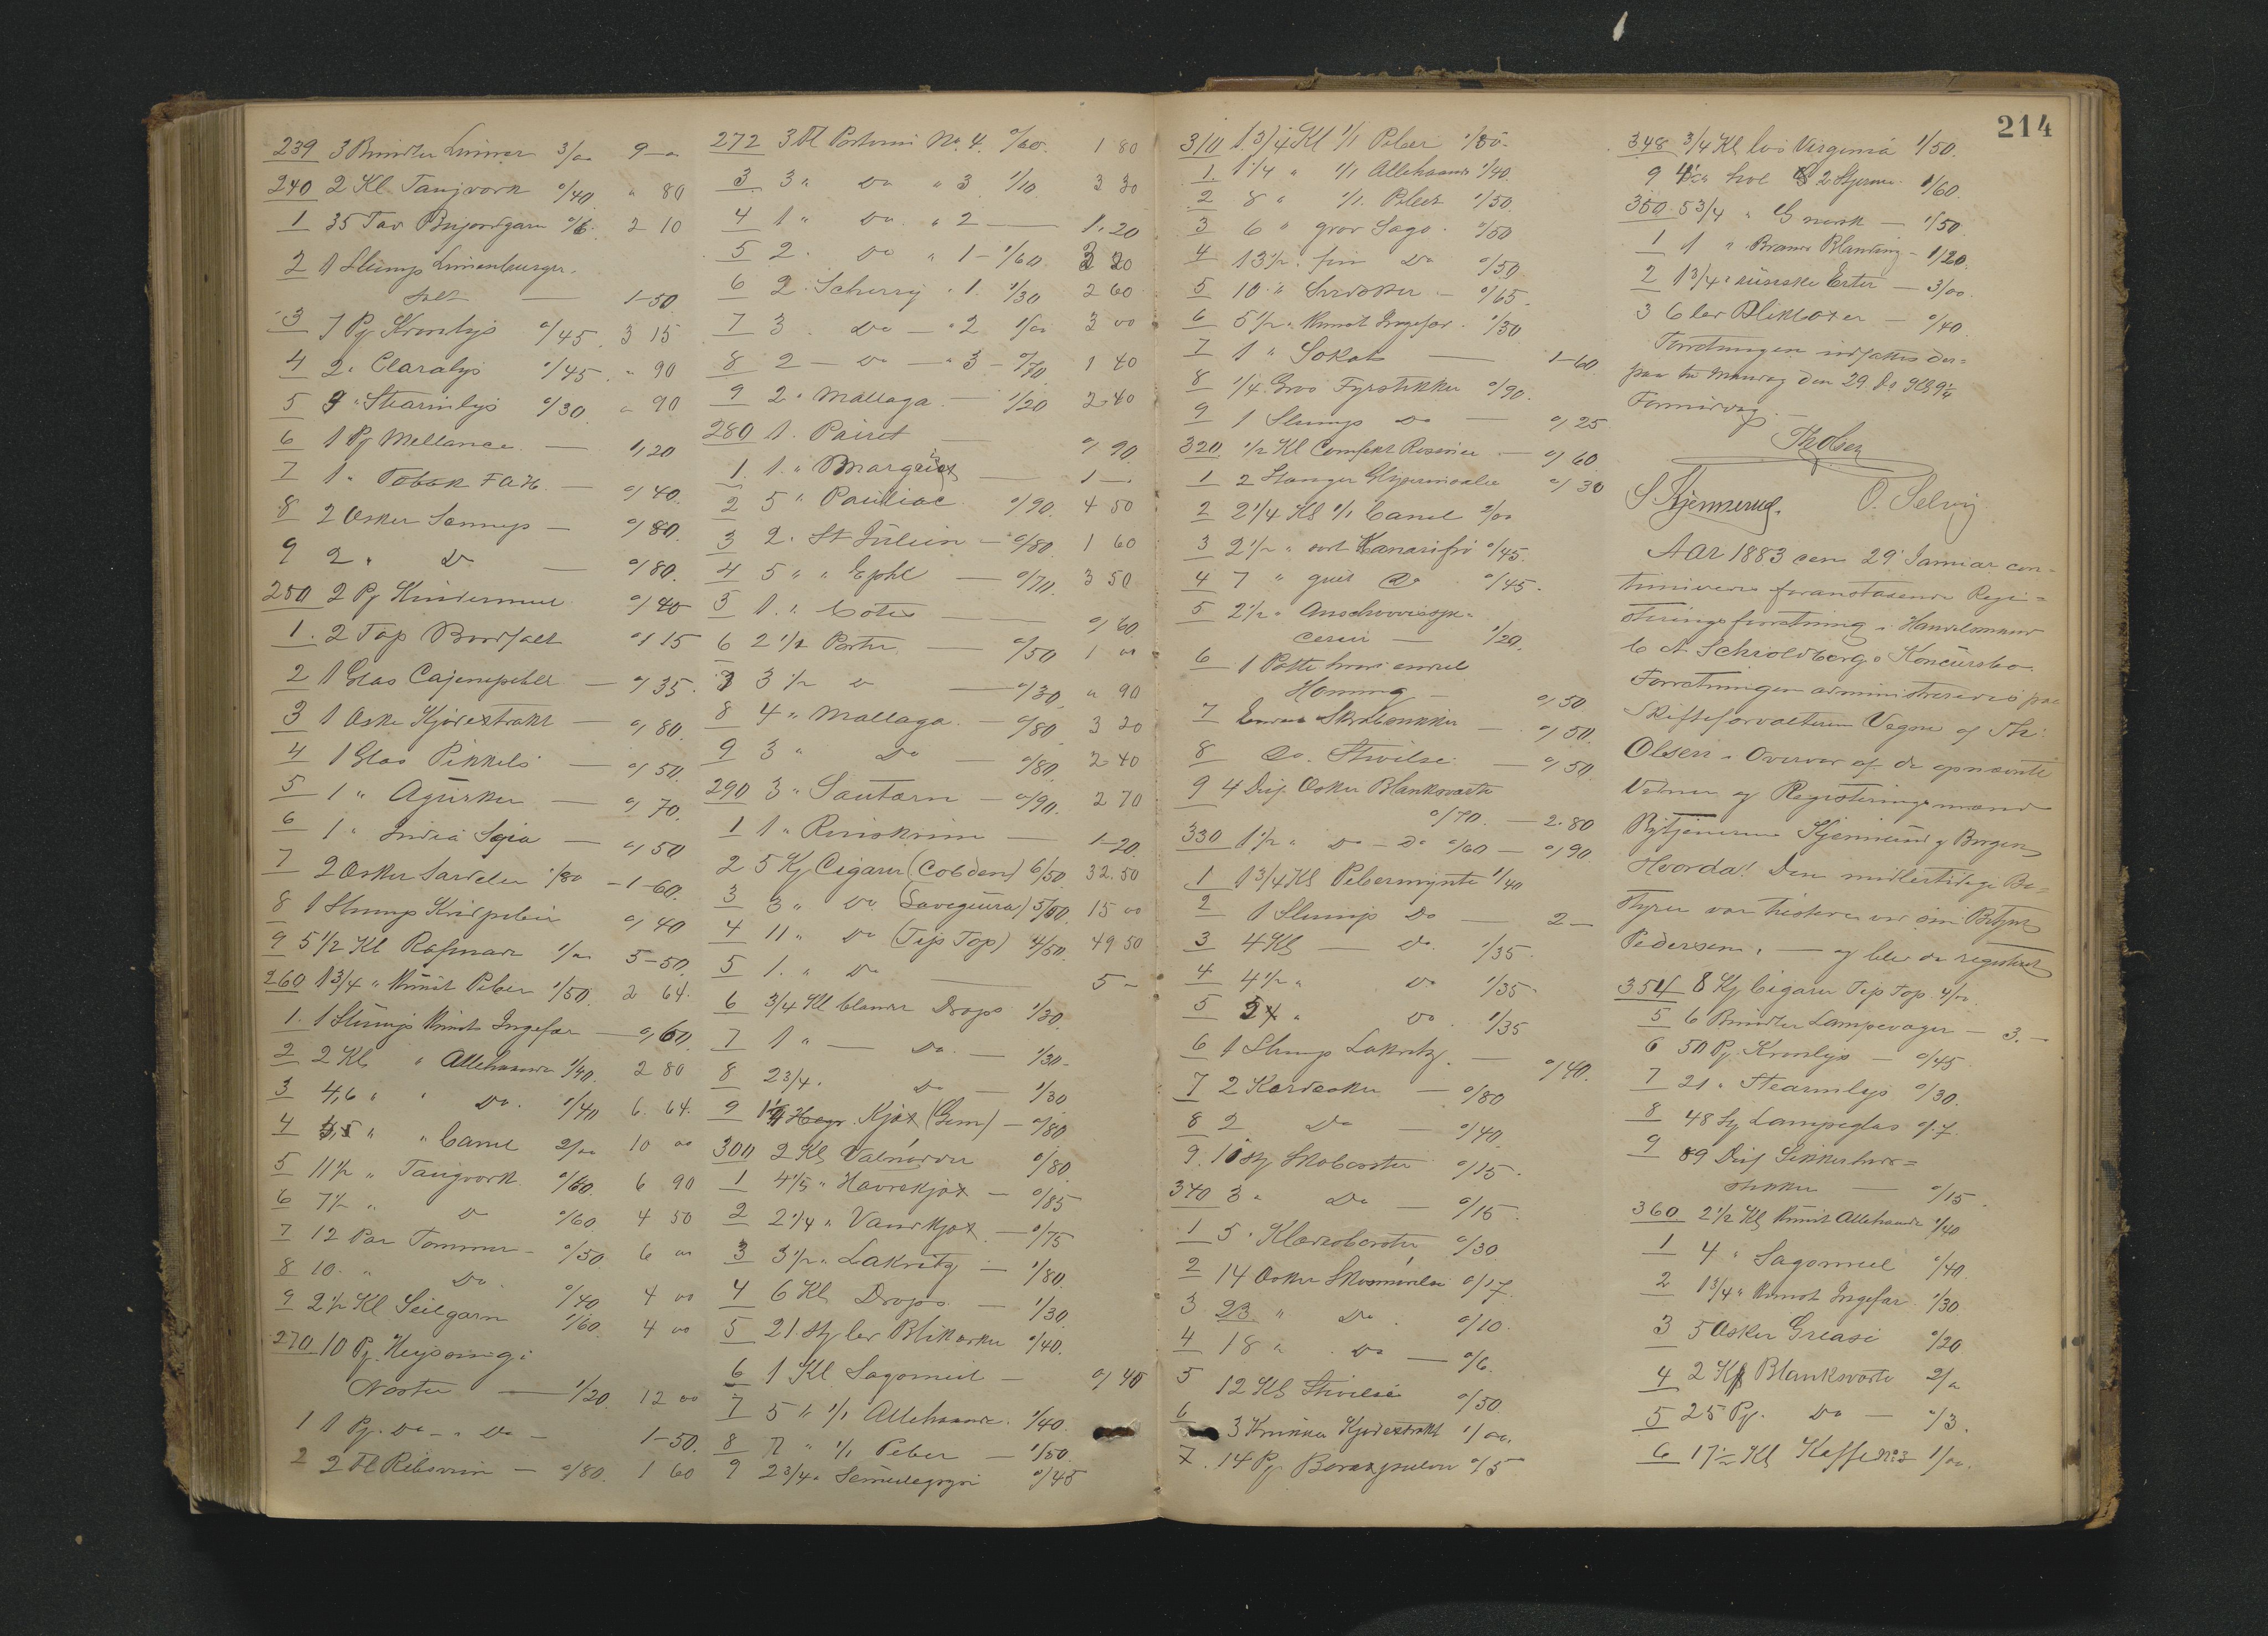 239 3 Bundter 3/00 9 – "
240 2 Kl. Taugværk 0/40. " 80
1 35 Tav 0/6. 2 10
2 1 Slump
Salt — 1-50.
3 7 Pg Kronlys 0/45. 3 15
4 2 " Claralys 0/45. " 90
5 3 " Stearinlys 0/30. " 90
6 1 Pg Mellance — 0/20
7 1 " Tobak — 0/40.
8 2 Æsker Sennep — 0/80.
9 2 " Do — 0/80.
250 2 Pg Kindermeel 0/40
1. 2 Top Bordsalt 0/15
2 1 Glas Cajenepeber — 0/35.
3 1 Æske Kjødextrakt — 0/80.
4 1 Glas Pikkels — 0/50.
5 1 " Agurker — 0/70.
6 1 " India Soja — 0/50
7 2 Æsker Sardeler 0/80 – 1-60.
8 1 Slump Kridpiber 0/40
9 5 1/2 Kl Rafinade 1/00 5-50.
260 1 3/4 " stødt Peber 1/50. 2 64.
1. 1 Slump stødt Ingefær — 0/60.
2 2 Kl. " Allehaande 1/40. 2 80
3 4,6 " " Do. 1/40 6. 64.
4 " " Canel 2/00 10 00
5 11 1/2 " Taugværk 0/60. 6 90
6 7 1/2 " Do 0/60. 4 50
7 12 Par Tømmer – 0/50. 6 00
8 10 " Do. 0/40 4 00
9 2 1/2 Kl Seilgarn 1/60. 4 00
270 10 Pg.
Nøster — 1/20. 12 00
1 1 Pg. Do – " Do – 1-50.
2 2 Fl Ribsviin — 0/80. 1 60
272 3 Fl Portviin No. 4. 0/60. 1 80
3 3 " Do " 3 1/10 3 30
4 1 " Do. " 2 — 1.20
5 2. Do " 1 – 1/60. 3 20
6 2. Scherry " 1. 1/30 2 60
7 3. Do — " 2 1/00 3 00
8 2 — Do — " 3 – 0/70. 1 40
9 2 " Mallaga — 1/20 2 40
280 1. — 0/90.
1. 1. " — 1 — "
2 5 " Pauliac 0/90. 4 50
3 2. " St Julien — 0/80. 1 60
4 5 " " Ephe — 0/70. 3 50
5 1. " Cotes — 0/60
6 2 1/2 Porter — 0/50 1 00
7 3 1/2 Do — 0/30. " 90
8 4 " Mallaga — 0/80 3 20
9 3 " Do — 0/80. 2 40
290 3 " Sautærn — 0/90. 2 70
1 1 " — 1-20.
2 5 Kj Cigarer (Cobden) 6/50. 32.50
3 3 " Do 5/00. 15 00
4 11 " Do (Tip Top) 4/50. 49 50
5 1. " Do — 5 –
6 3/4 Kl blande Drops 1/30.
7 1 " — Do. — 1/30 –
8 2 3/4 " Do — 1/30
9 Kjæx (Gem) — 0/80.
300 2 Kl. Valnødder 0/80.
1 4 1/5 " Havrekjæx — 0/85
2 2 1/4 " Vandkjæx. — 0/75
3 3 1/2 " Lakritz — 1/80.
4 6 Kl. Drops — 1/30.
5 21 Stk. ler Blikæsker 0/40.
6 1 Kl Sagomeel — 0/40
7 5 " 1/1 Allehaande. 1/40.
8 7 " 1/1 Peber — 1/50.
9 2 3/4 " Semulegryn 0/45
310 1. 3/4 Kl 1/1 Peber 1/80 –
1. 1 1/4 " 1/1 Allehaande 1/40.
2 8 " 1/1 Peber 1/50.
3 6 " grov Sago. 0/50
4 13 1/2 " fin Do 0/50.
5 10 " Svedsker — 0/65 –
6 5 1/2 " stødt Ingefær. 1/30
7 1 " Sokat — 1-60.
8 1/4 Gros Fyrstikker 0/90.
9 1 Slump Do — 0/25
320 1/2 Kl Comfekt Rosiner — 0/60.
1 2 Stanger 0/30
2 2 1/4 Kl. 1/1 Canel 2/00
3 2 1/2 " Kanarifrø 0/45.
4 7 " Do 0/45.
5 2 1/2 " Anschovisspe-
cerier — 1/20.
6 1 Potte
Honning — 0/50.
7 — 0/50.
8 Do. Stivelse — 0/50.
9 4 Dus. Æsker Blanksværte
0/70. — 2.80
330 1 1/2 " Do — Do 0/60 — 0/90
1 1 3/4 Kl Pebermynte 1/40
2 1 Slump Do — 2 —
3 4 Kl. — Do. 1/35.
4 4 1/2 " Do 1/35 –
5 " Do. 1/35
6 1 Slump Lakritz. — 0/40.
7 2 — 0/80
8 2 Do — 0/40.
9. 10 Stk. Skobørster 0/15.
340 3 " Do — 0/15.
1 5 " Klædesbørster 0/30
2 14 Æsker Skosmørelse 0/17.
3 23 " Do. 0/10.
4 18 " Do — 0/6.
5 12 Kl. Stivelse 0/50.
6 3 Krukker Kjødextrakt 1/00.
7. 14 Pg. Boraxpulver 0/5
214
348 3/4 Kl løs Virginia 1/50.
9 2 Stjerne 1/60.
350. 5 3/4 " norsk — 1/50.
1 1 " Blanding – 1/20.
2 1 3/4 " russiske Erter — 3/00.
3 6 ler Blikæsker — 0/40.
Forretningen udsattes der-
paa til Mandag den 29. ds Kl. 9 1/2
Formiddag. —
Th Olsen
S. Kjennerud. O. Selvig
Aar 1883 den 29. Januar con-
tinueredes foranstaaende Regi-
streringsforretning i Handelsmand
C A Schioldborgs Konkursbo.
Forretningen administreredes paa
Skifteforvalterens Vegne af Th:
Olsen i Overvær af de opnævnte
Vidner og Registreringsmænd
Bytjenerne Kjennerud og Borgen
Hvorda! Den midlertidige Be-
styrer var tilstede ved sin Betjent
Pedersen. — og blev da registreret
354 8 Kj Cigarer Tip Top. 4/00.
5 6 Bundter Lampevæger — 3. –
6 50 Pg. Kronlys — 0/45.
7 21 " Stearinlys 0/30.
8 48 Stk Lampeglas 0/7.
9 89 Dus Sikkerheds-
stikker — 0/15.
360 2 1/2 Kl. stødt Allehaande 1/40
1 4 " Sagomeel 0/40.
2 1 3/4 " stødt Ingefær 1/30
3 5 Æsker Greasi 0/20
4 2 Blanksværte 2/00
5 25 Pg. Do — 0/3.
6 17 1/2 Kl Kaffe No 3 1/00.